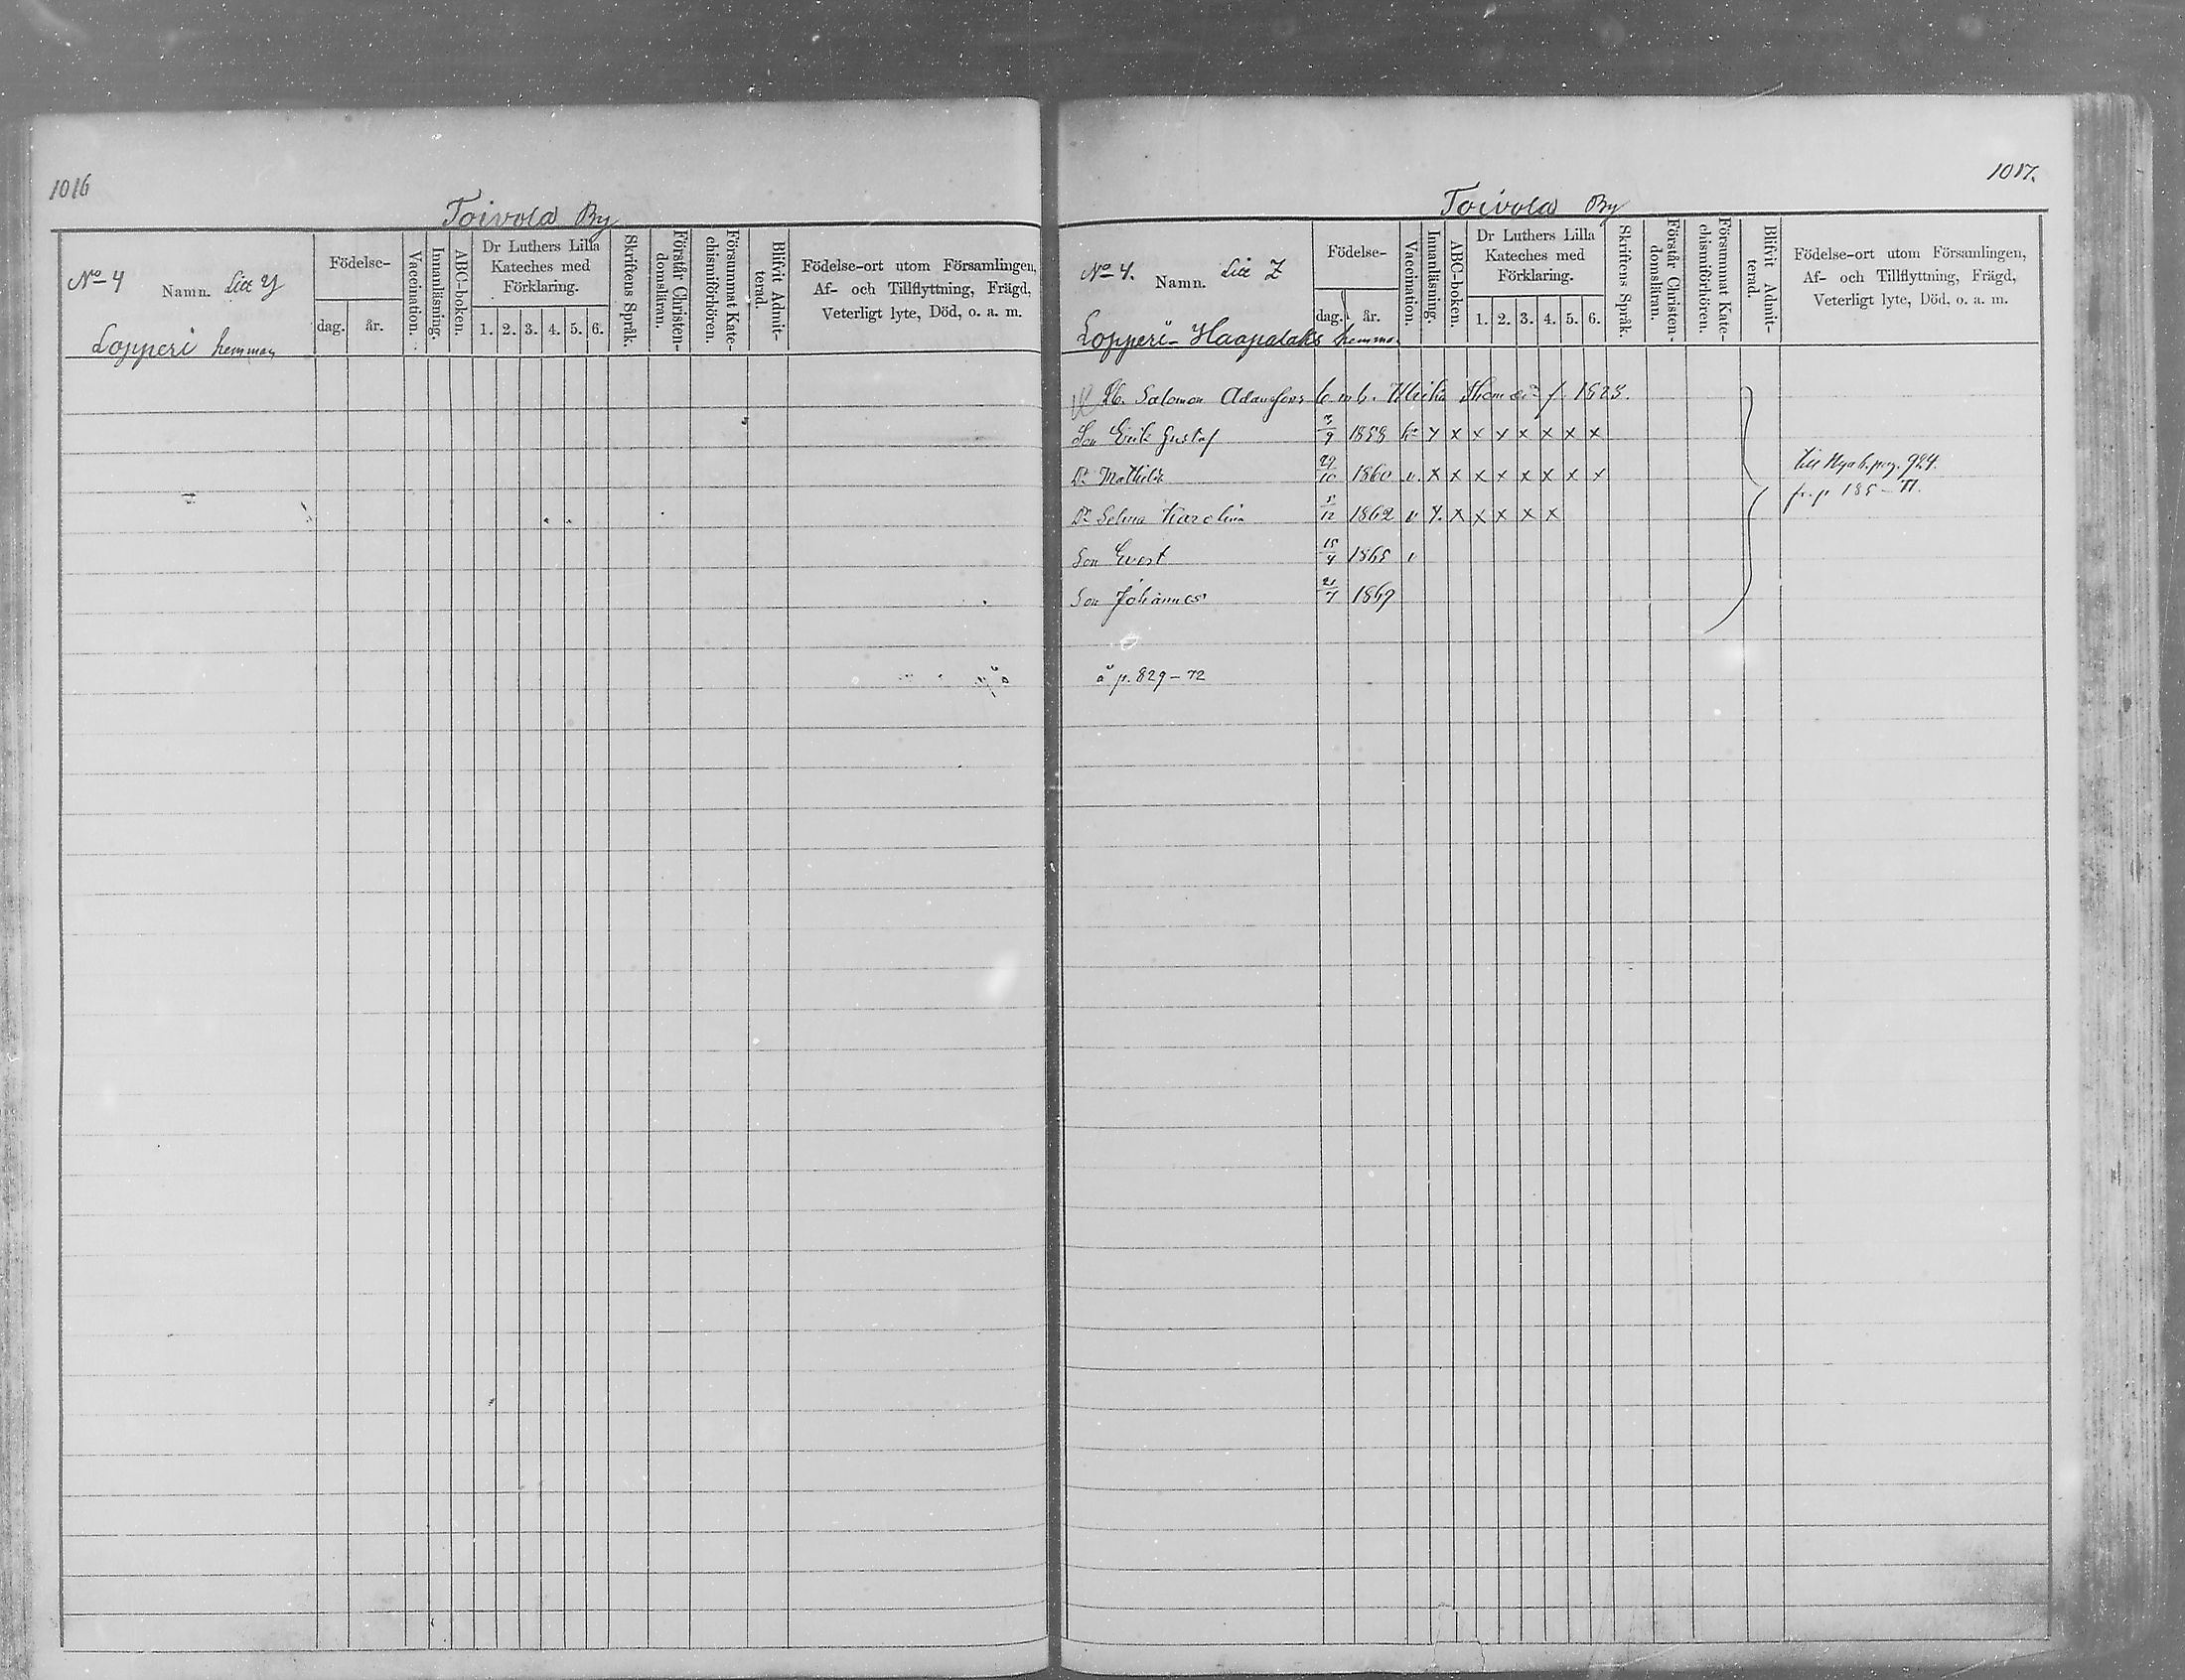 1016
Toivola By
No 4 Namn. Litt Y
Födelse-
dag. år.
Vaccination.
Innanläsning.
ABC-boken.
Dr Luthers Lilla
Kateches med
Förklaring.
1. 2. 3. 4. 5. 6.
Skriftens Språk.
Förstår Christen-
domsläran.
Försummat Kate-
chismiförhören.
Blifvit Admit-
terad.
Födelse-ort utom Församlingen,
Af- och Tillflyttning, Frägd,
Veterligt lyte, Död, o. a. m.
Lopperi hemman
1017.
Toivola By
No 4. Namn. Litt Z
Födelse-
dag. år.
Vaccination.
Innanläsning.
ABC-boken.
Dr Luthers Lilla
Kateches med
Förklaring.
1. 2. 3. 4. 5. 6.
Skriftens Språk.
Förstår Christen-
domsläran.
Försummat Kate-
chismiförhören.
Blifvit Admit-
terad.
Födelse-ort utom Församlingen,
Af- och Tillflyttning, Frägd,
Veterligt lyte, Död, o. a. m.
Lopperi-Haapalaks hemman
Salomon Adamsons Ulrika 1823.
Son Erik Gustaf 3/9 1858 x x x x x x x x
Dr Mathilda 29/10 1860 v. x x x x x x x x
Dr Selma Karolina 5/12 1862 v x x x x x x
Son Evert 15/4 1865 v
Son Johannes 21/7 1867
till Nya b. pag. 924.
fr. p 185-71.
å p. 829-72